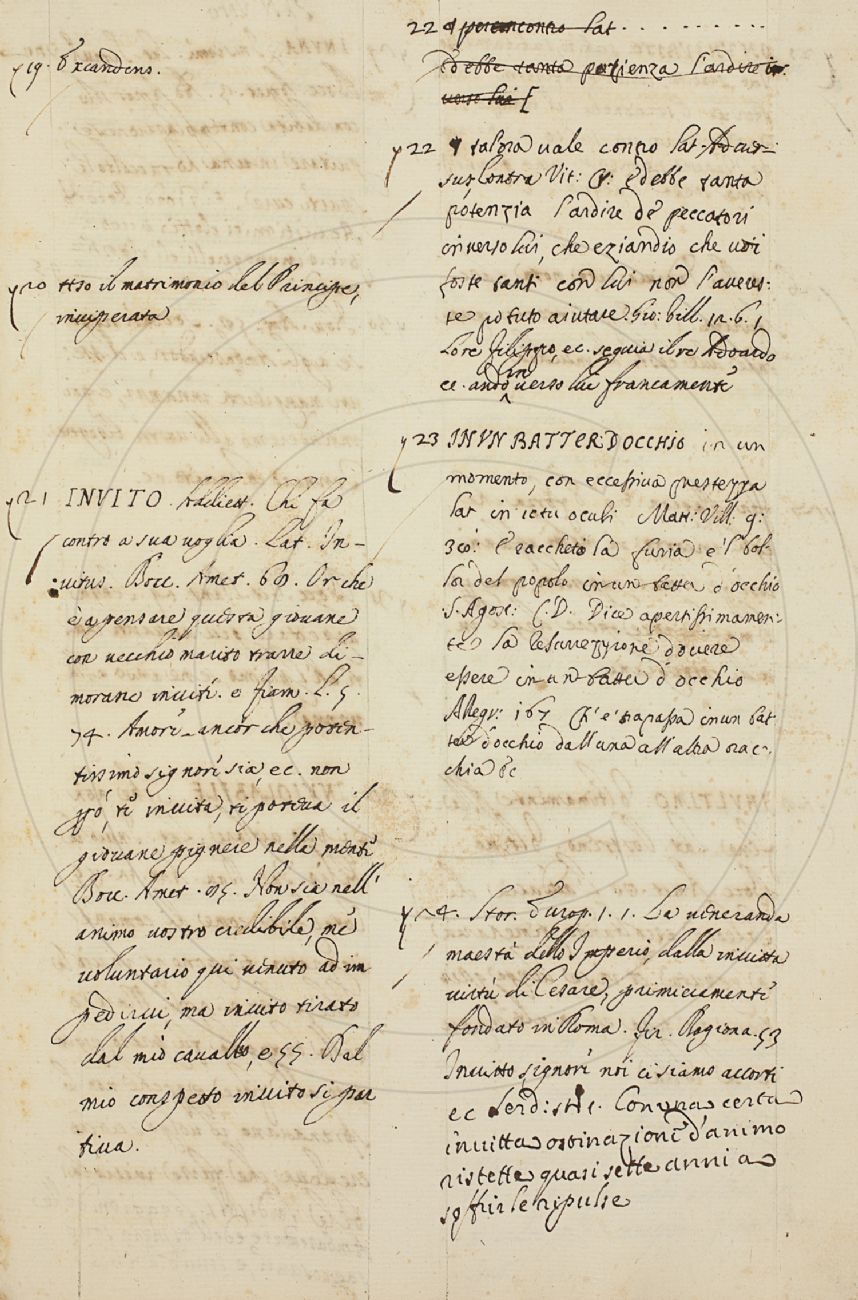 19. Excandens.
20 reso il matrimonio del Principe,
inviperata
21 INVITO. Addiett. Chi fa
contro a sua voglia. Lat. In-
vitus. Bocc. Amet. 69. Or che
è a pensare questa giovane
con vecchio marito trarre di-
morane inviti. e Fiam. L. 5.
74. Amore ancor che poten-
tissimo signore sia, ec. non
può, te invita, ti poteva il
giovane pignere nella mente
Bocc. Amet. 95. Non sia nell'
animo vostro credibile, me
voluntario qui venuto ad im
pedirvi, ma invito tirato
dal mio cavallo, e 55. Dal
mio conspetto invito si par
tiva.
22 Lat. . . . . . . . . .
Ed ebbe tanta l'ardire in
verso lui [
22 vale contro Lat. Adver-
sus, Contra Vit: Ed ebbe tanta
potenzia l'ardire de' peccatori
inverso lui, che eziandio che voi
foste santi con lui non l'aveves-
te potuto aiutare. Gio: Vill. 12. 6.
Lo re Filippo, ec. seguia il re Adoardo
ec. andò in verso lui francamente
23 IN UN BATTER D'OCCHIO in un
momento, con eccessiva prestezza
Lat in ictu oculi Matt: Vill. 9:
30: E racchetò la furia e 'l bol-
là del popolo in un batter d'occhio
S. Agost: C. D. Dice apertissimamen-
te, la resurrezzione dovere
essere in un batter d'occhio
Allegr: 167 E e' trapassa in un bat
ter d'occhio dall'una all'altra
chia &c
24. Stor. Europ. 1. 1. La veneranda
maestà dello Imperio, dalla invitta
virtù di Cesare, primieramente
fondato in Roma. Fir. Ragiona. 53
Invitto signore noi ci siamo accorti
ec Serd: st: 1. Con una certa
invitta ostinazione d'animo
ristette quasi sette anni a
soffrir le ripulse